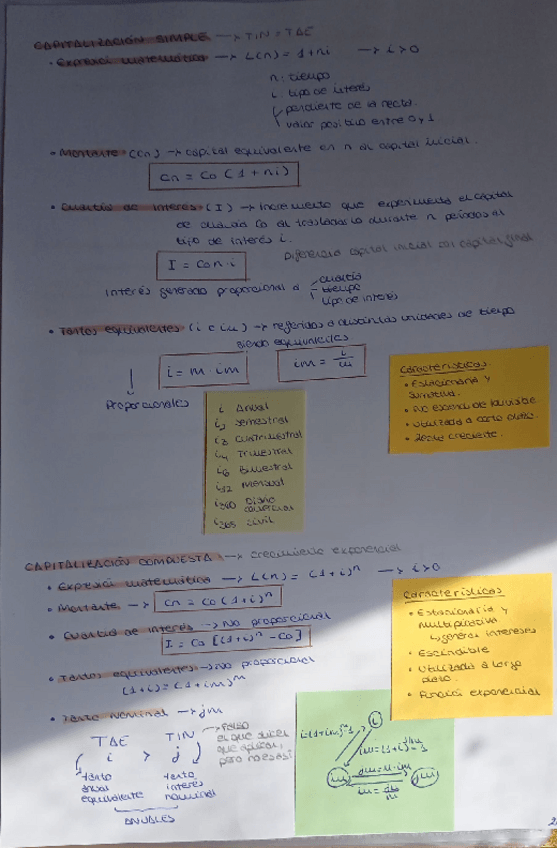 CAPITALIZACIÓN SIMPLE → TIN = TAE
• Expresió matemática → L(n) = 1 + ni → i > 0
n: tiempo
i: tipo de interés
pendiente de la recta
valor positivo entre 0 y 1
• Montante (Cn) → capital equivalente en n al capital inicial.
Cn = Co (1 + ni)
• Cuantía de interés (I) → incremento que experimenta el capital
de cuantía Co al trasladarlo durante n periodos al
tipo de interés i.
Diferencia capital inicial con capital final
I = Co n · i
Interés generado proporcional a
cuantía
tiempo
tipo de interés
• Tantos equivalentes (i e im) → referidos a distintas unidades de tiempo
siendo equivalentes
i = m · im
im = i/m
Proporcionales
i Anual
i2 Semestral
i3 Cuatrimestral
i4 Trimestral
i6 Bimestral
i12 Mensual
i360 Diario
comercial
i365 civil
Características
• Estacionaria y
sumativa.
• No escindible
• Utilizada a corto plazo.
• Recta creciente.
CAPITALIZACIÓN COMPUESTA → crecimiento exponencial
• Expresió matemática → L(n) = (1+i)ⁿ → i > 0
• Montante → Cn = Co (1+i)ⁿ
• Cuantía de interés → No proporcional
I = Co [(1+i)ⁿ - Co]
• Tantos equivalentes → No proporcional
(1+i) = (1+im)ᵐ
• Tanto Nominal → jm
TAE TIN
i > j
Tanto
anual
equivalente
Tanto
interés
nominal
ANUALES
Falso
el que dicen
que aplican,
pero no es así
Características
• Estacionaria y
multiplicativa
generar intereses
• Escindible
• Utilizada a largo
plazo.
• Función exponencial
i = (1+im)ᵐ - 1
i
im = (1+i)^1/m - 1
im
jm = m · im
jm
im = jm/m